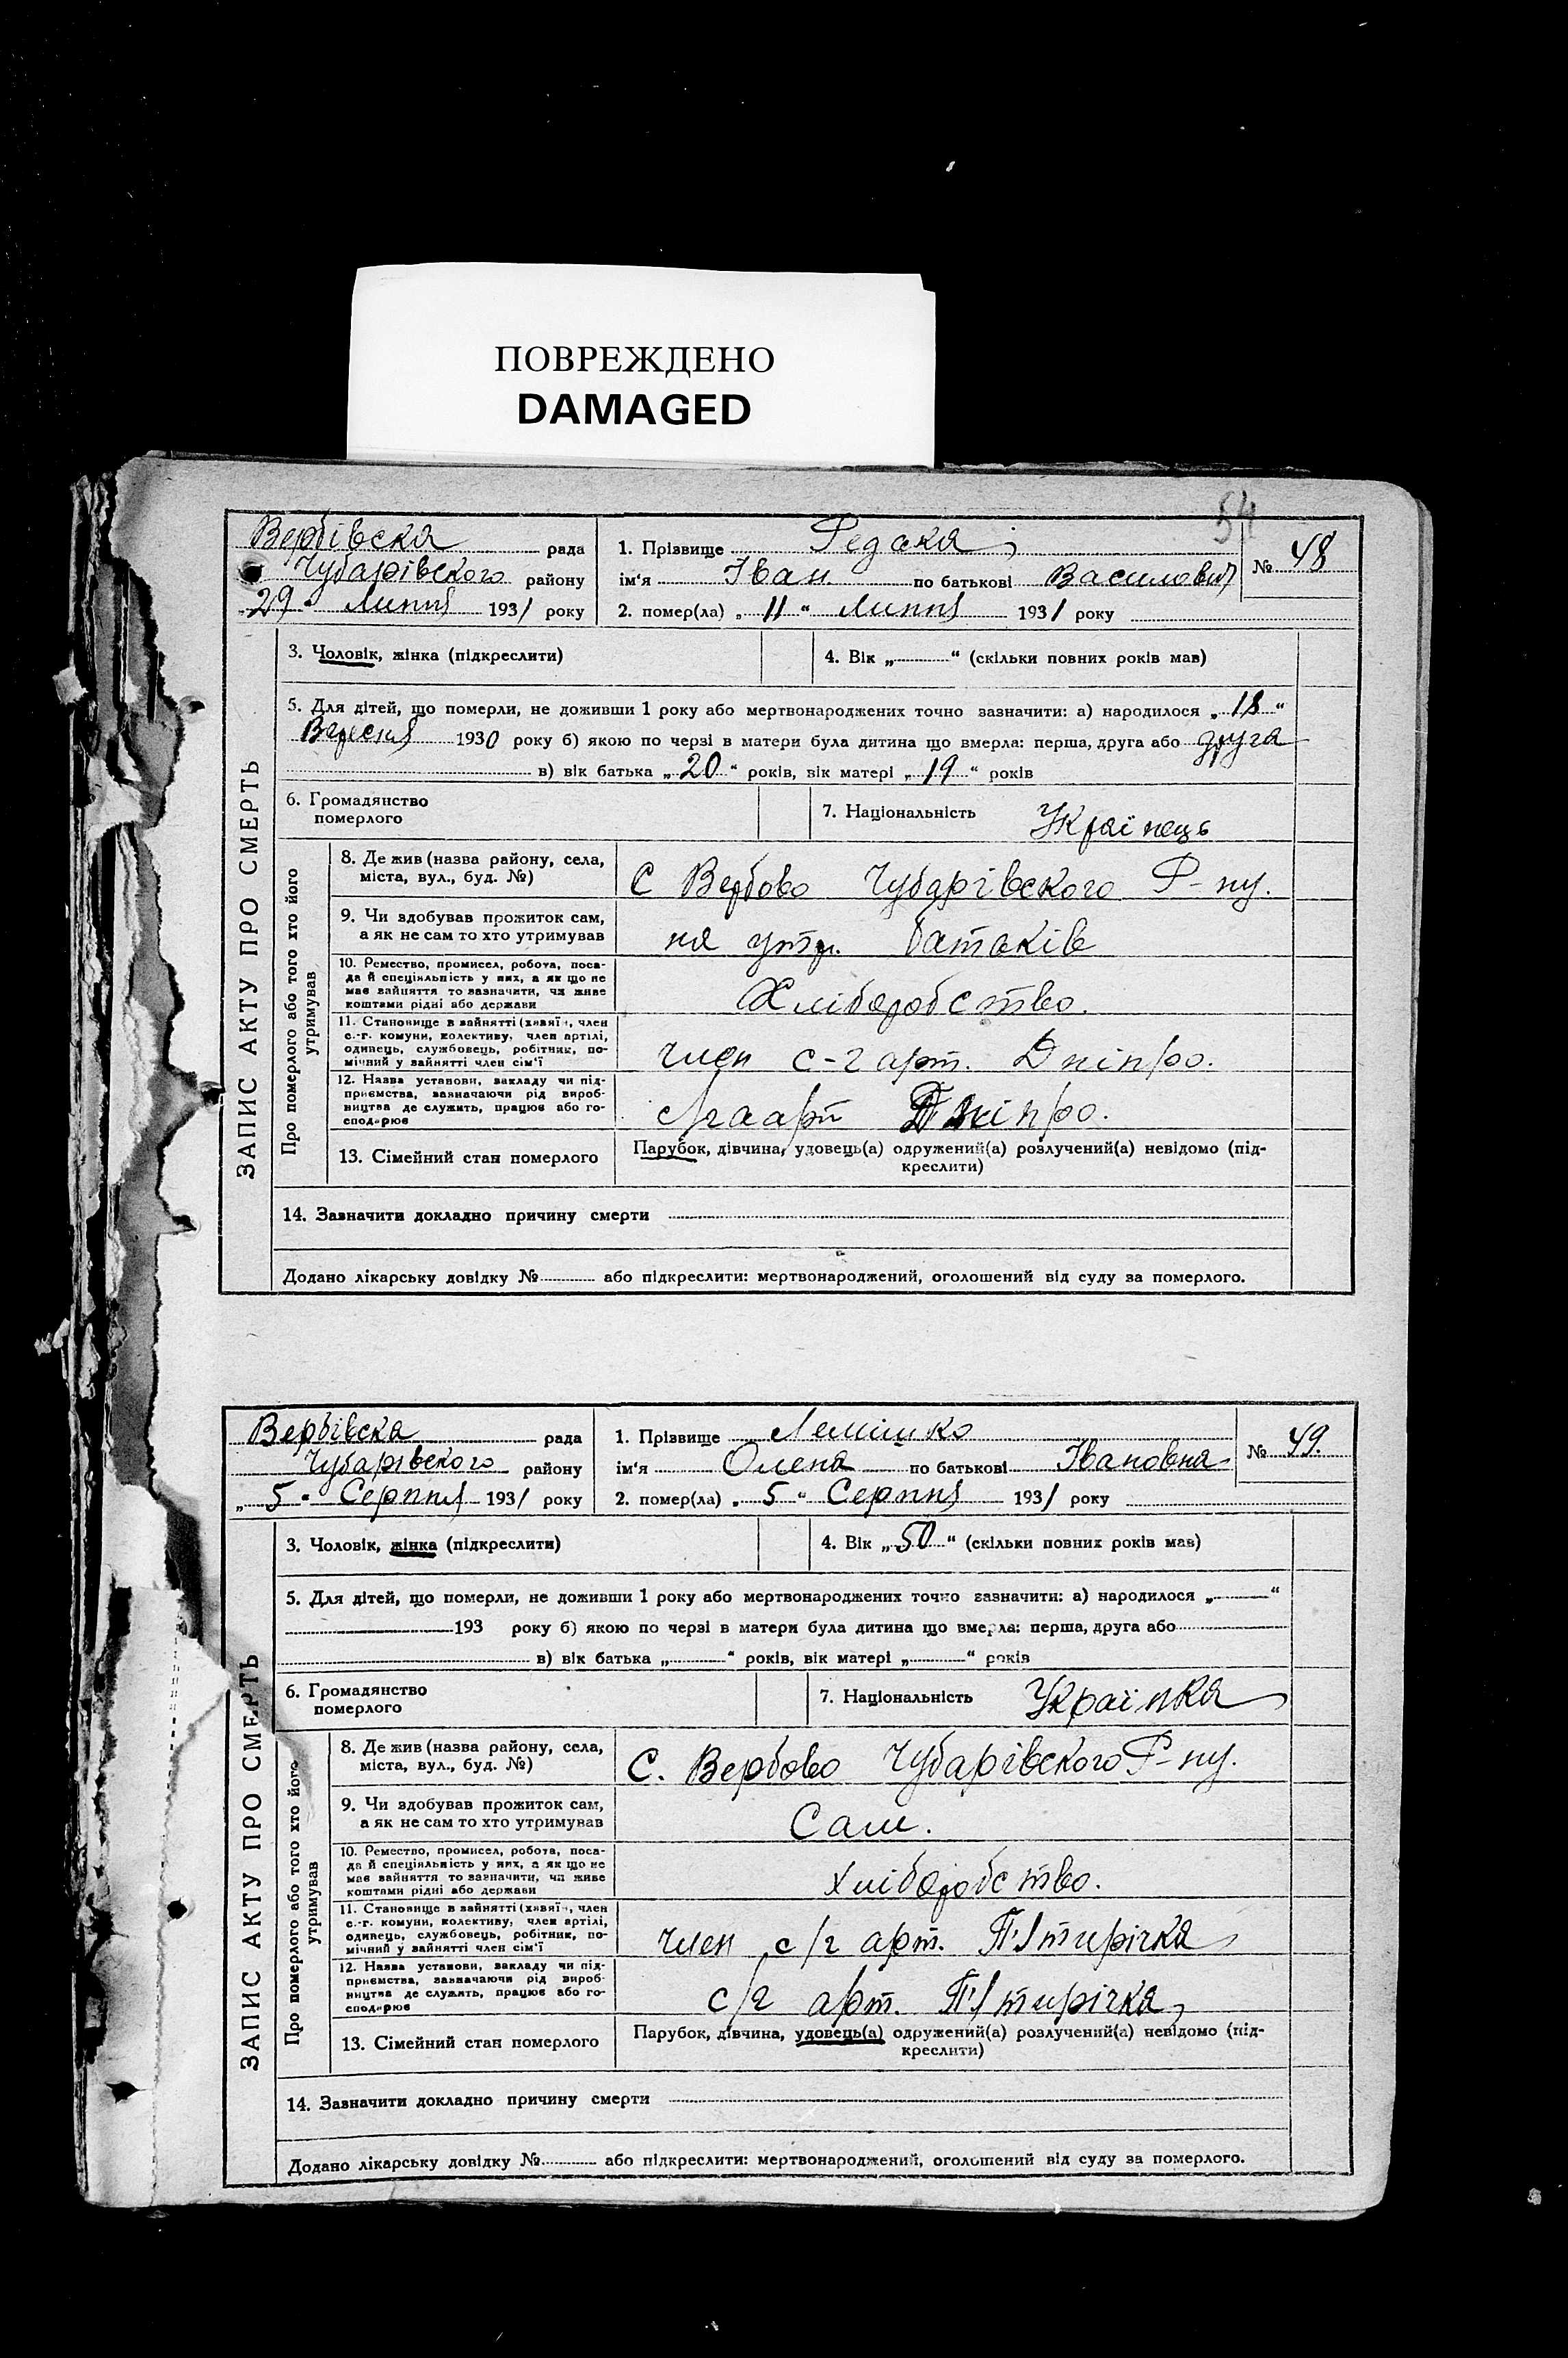 ПОВРЕЖДЕНО
DAMAGED
54
Вербівска рада
Чубарівского району
„29" Липня 1931 року
1. Прізвище Редака
ім'я Іван по батькові Василович
2. помер(ла) „11" Липня 1931 року
№ 48
ЗАПИС АКТУ ПРО СМЕРТЬ
3. Чоловік, жінка (підкреслити)
4. Вік „ " (скільки повних років мав)
5. Для дітей, що померли, не доживши 1 року або мертвонароджених точно зазначити: а) народилося „18"
Вересня 1930 року б) якою по черзі в матери була дитина що вмерла: перша, друга або друга
в) вік батька „20" років, вік матері „19" років
6. Громадянство
померлого
7. Національність Українець
Про померлого або того хто його
утримував
8. Де жив (назва району, села,
міста, вул., буд. №)
С Вербово Чубарівского Р-ну.
9. Чи здобував прожиток сам,
а як не сам то хто утримував
на утр. батьків
10. Ремество, промисел, робота, поса-
да й спеціяльність у них, а як що не
має зайняття то зазначити, чи живе
коштами рідні або держави
Хліборобство.
11. Становище в зайнятті (хазяїн, член
с.-г. комуни, колективу, член артілі,
одинець, службовець, робітник, по-
мічний у зайнятті член сім'ї
член с-г арт. Дніпро.
12. Назва установи, закладу чи під-
приємства, зазначаючи рід вироб-
ництва де служить, працює або го-
сподарює
Дніпро.
13. Сімейний стан померлого
Парубок, дівчина, удовець(а) одружений(а) розлучений(а) невідомо (під-
креслити)
14. Зазначити докладно причину смерти
Додано лікарську довідку № або підкреслити: мертвонароджений, оголошений від суду за померлого.
Вербівска рада
Чубарівского району
„5" Серпня 1931 року
1. Прізвище Лемішко
ім'я Олена по батькові Івановна
2. помер(ла) „5" Серпня 1931 року
№ 49.
ЗАПИС АКТУ ПРО СМЕРТЬ
3. Чоловік, жінка (підкреслити)
4. Вік „50" (скільки повних років мав)
5. Для дітей, що померли, не доживши 1 року або мертвонароджених точно зазначити: а) народилося „ "
193 року б) якою по черзі в матери була дитина що вмерла: перша, друга або
в) вік батька „ " років, вік матері „ " років
6. Громадянство
померлого
7. Національність Українка
Про померлого або того хто його
утримував
8. Де жив (назва району, села,
міста, вул., буд. №)
С. Вербово Чубарівского Р-ну.
9. Чи здобував прожиток сам,
а як не сам то хто утримував
Сам.
10. Ремество, промисел, робота, поса-
да й спеціяльність у них, а як що не
має зайняття то зазначити, чи живе
коштами рідні або держави
хліборобство.
11. Становище в зайнятті (хазяїн, член
с.-г. комуни, колективу, член артілі,
одинець, службовець, робітник, по-
мічний у зайнятті член сім'ї
член с/г арт. П'ятирічка
12. Назва установи, закладу чи під-
приємства, зазначаючи рід вироб-
ництва де служить, працює або го-
сподарює
с/г арт. П'ятирічка
13. Сімейний стан померлого
Парубок, дівчина, удовець(а) одружений(а) розлучений(а) невідомо (під-
креслити)
14. Зазначити докладно причину смерти
Додано лікарську довідку № або підкреслити: мертвонароджений, оголошений від суду за померлого.